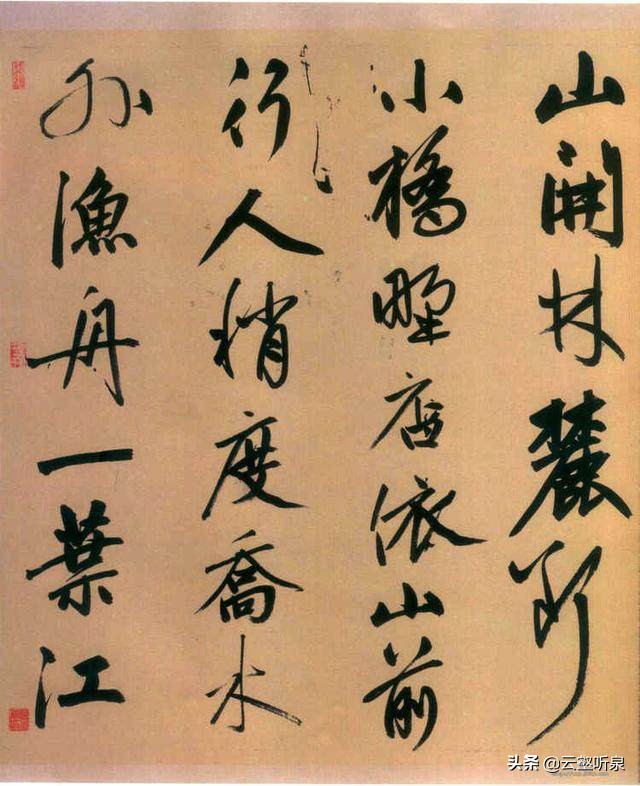 山開林麓斷
小橋野店依山前
行人稍度喬木
外漁舟一葉江
头条 @云壑听泉